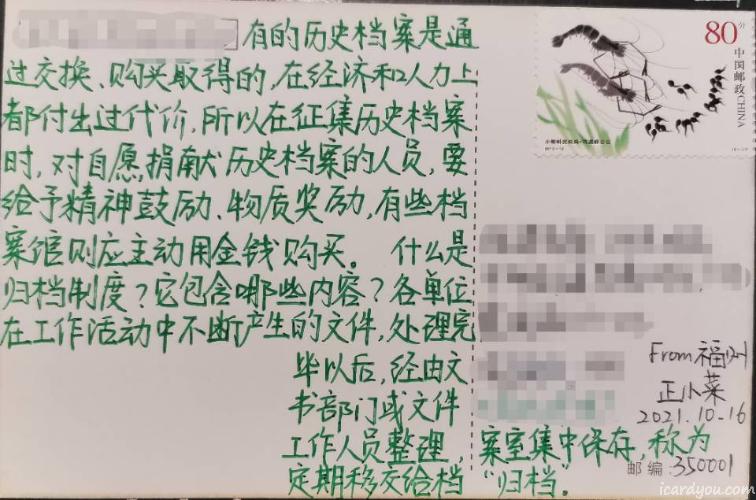 有的历史档案是通
过交换、购买取得的,在经济和人力上
都付出过代价,所以在征集历史档案
时,对自愿捐献历史档案的人员,要
给予精神鼓励、物质奖励,有些档
案馆则应主动用金钱购买。 什么是
归档制度?它包含哪些内容?各单位
在工作活动中不断产生的文件,处理完
毕以后,经由文
书部门或文件
工作人员整理,
定期移交给档
案室集中保存,称为
“归档。”
80分
中国邮政CHINA
From 福州
正小菜
2021.10.16
邮编:350001
icardyou.com